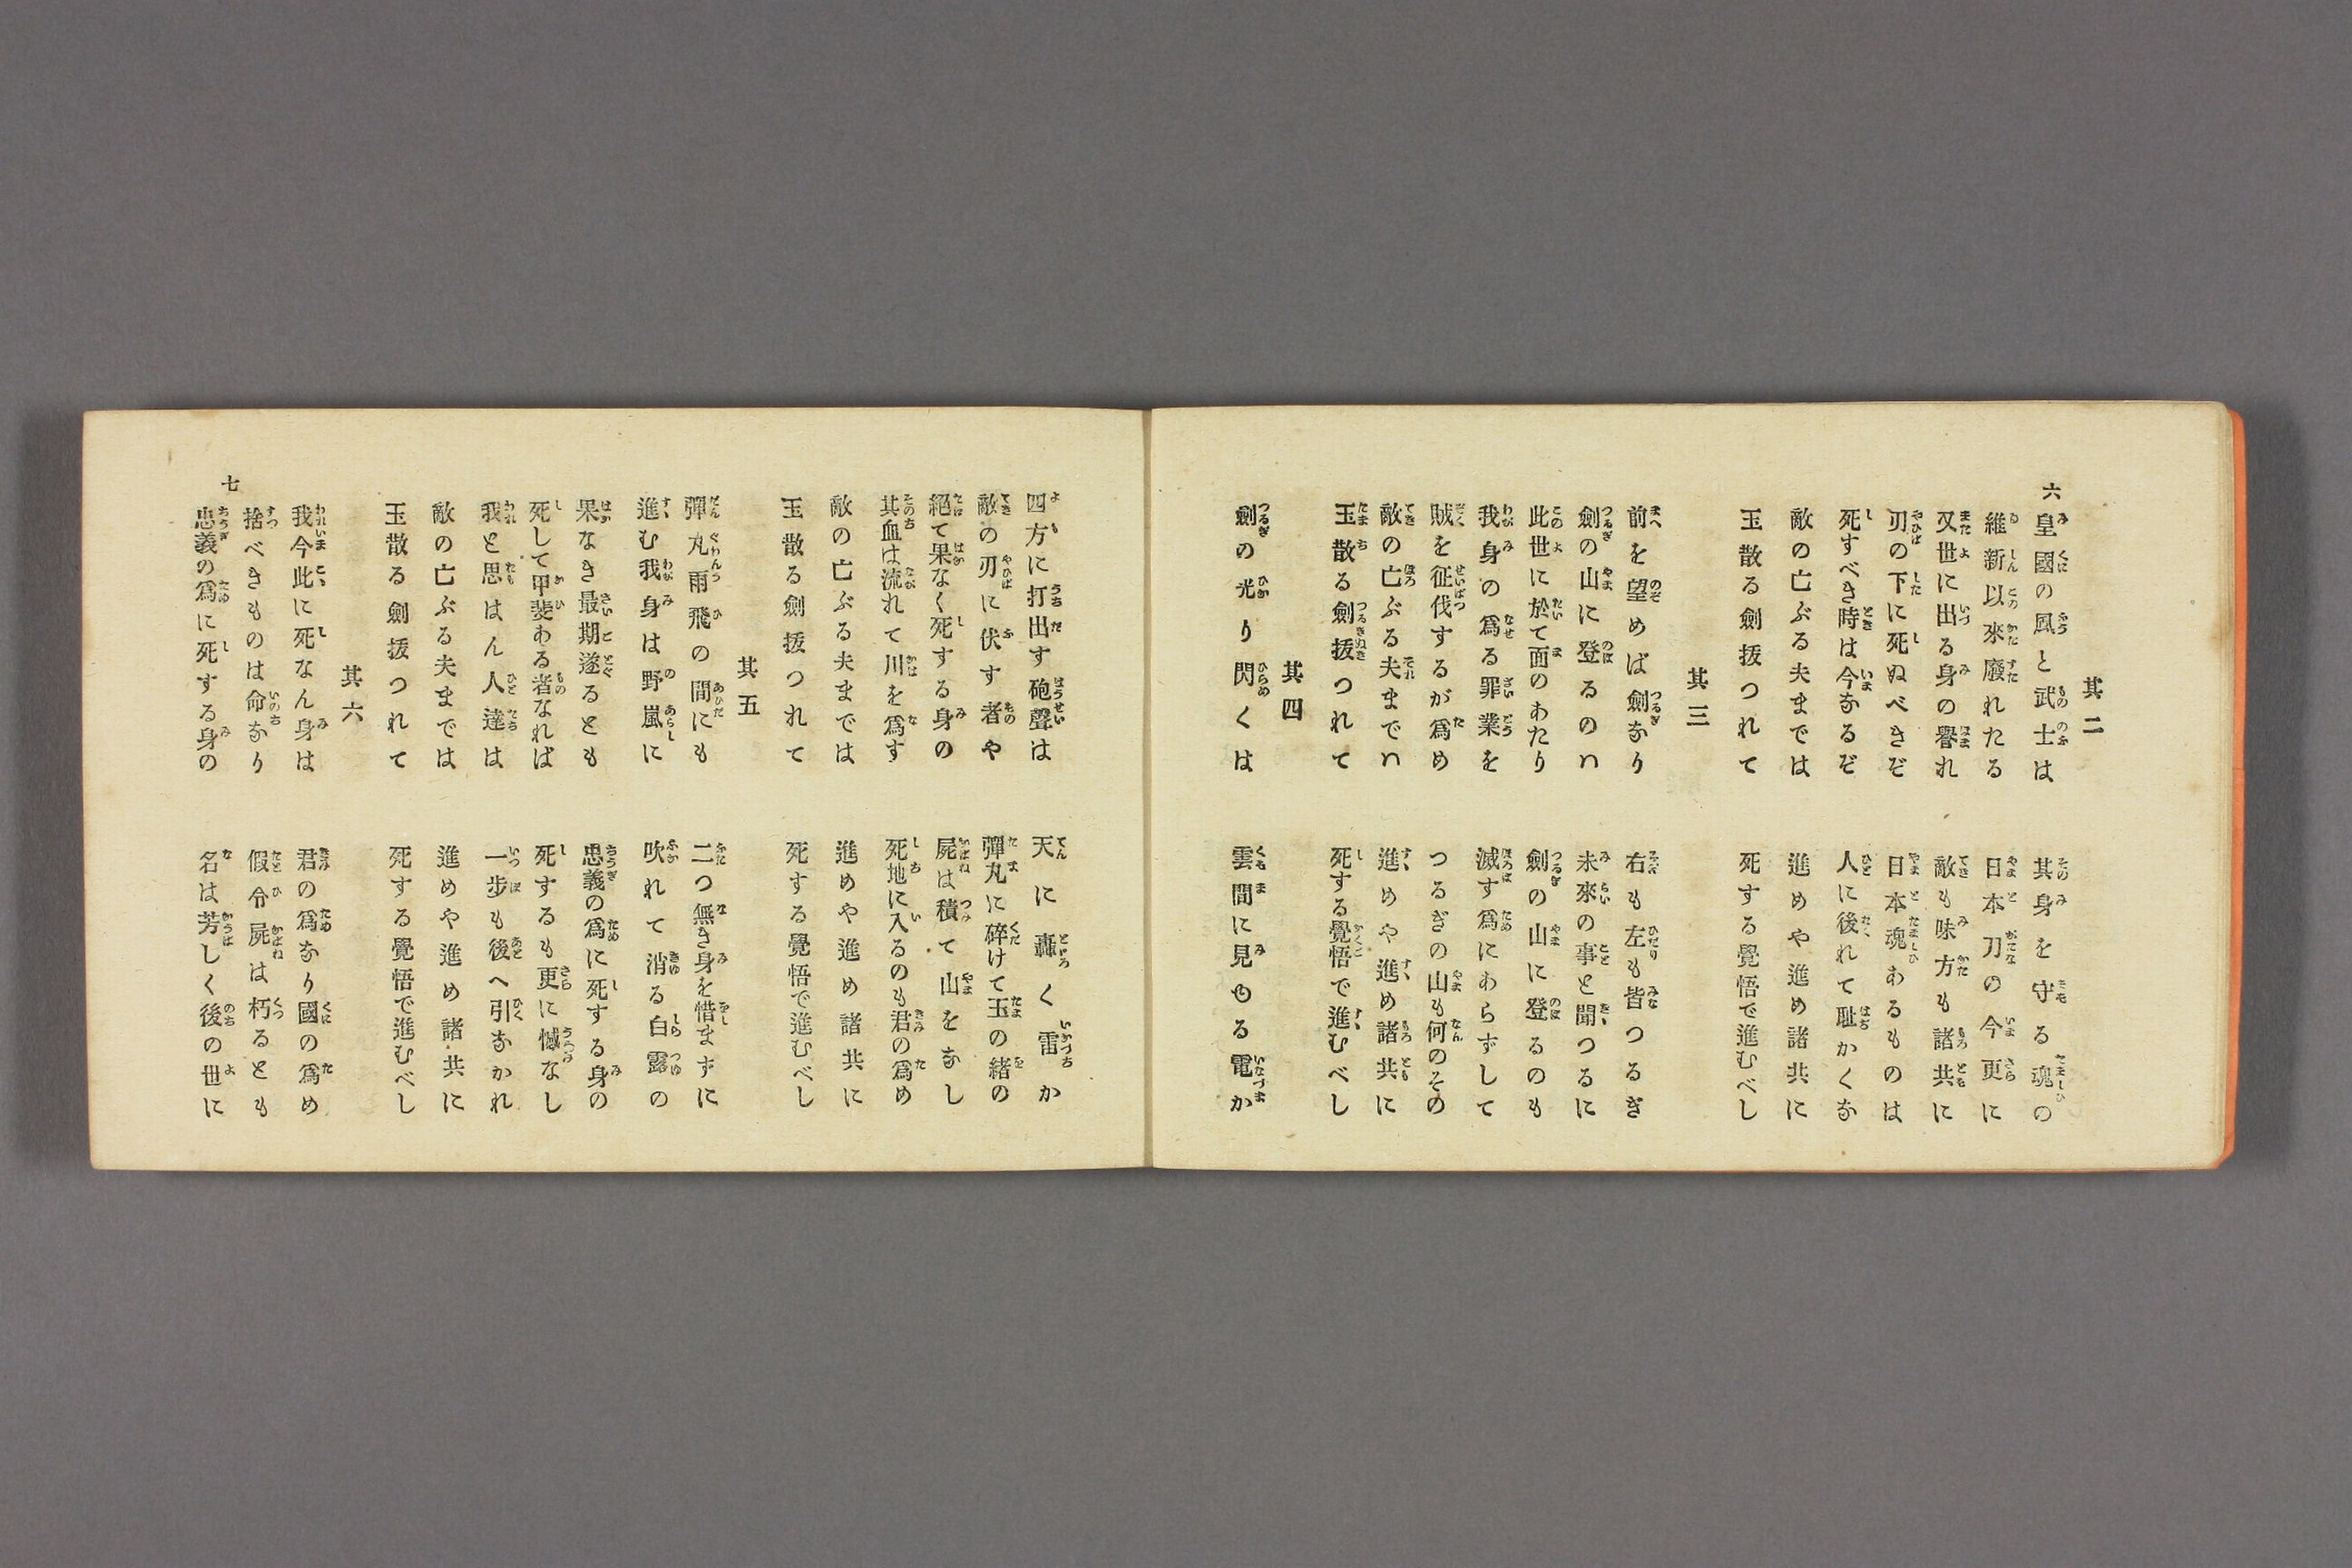 六
其二
皇國の風と武士は　其身を守る魂の
維新以來廢れたる　日本刀の今更に
又世に出る身の譽れ　敵も味方も諸共に
刃の下に死ぬべきぞ　日本魂あるものは
死すべき時は今なるぞ　人に後れて耻かくな
敵の亡ぶる夫までは　進めや進め諸共に
玉散る劍拔つれて　死する覺悟で進むべし
其三
前を望めば劍なり　右も左も皆つるぎ
劍の山に登るのハ　未來の事と聞つるに
此世に於て面のあたり　劍の山に登るのも
我身の爲る罪業を　滅す爲にあらずして
賊を征伐するが爲め　つるぎの山も何のその
敵の亡ぶる夫までハ　進めや進め諸共に
玉散る劍拔つれて　死する覺悟で進むべし
其四
劍の光り閃くは　雲間に見ゆる電か
四方に打出す砲聲は　天に轟く雷か
敵の刃に伏す者や　彈丸に碎けて玉の緒の
絕て果なく死する身の　屍は積て山をなし
其血は流れて川を爲す　死地に入るのも君の爲め
敵の亡ぶる夫までは　進めや進め諸共に
玉散る劍拔つれて　死する覺悟で進むべし
其五
彈丸雨飛の間にも　二つ無き身を惜まずに
進む我身は野嵐に　吹れて消る白露の
果なき最期遂るとも　忠義の爲に死する身の
死して甲斐ある者なれば　死するも更に憾なし
我と思はん人達は　一步も後へ引なかれ
敵の亡ぶる夫までは　進めや進め諸共に
玉散る劍拔つれて　死する覺悟で進むべし
其六
我今此に死なん身は　君の爲なり國の爲め
捨べきものは命なり　假令屍は朽るとも
忠義の爲に死する身の　名は芳しく後の世に
七